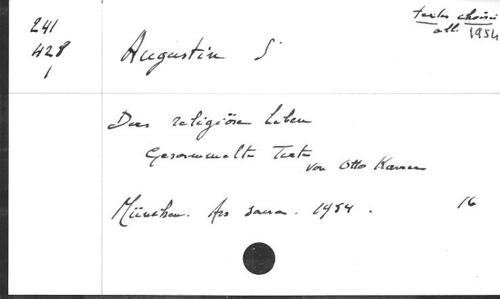 textes choisis
all. 1954
241
428
1
Augustin S
Das religiöse Leben
Gesammelte Texte
von Otto Karrer
München. Ars sacra. 1954. 16